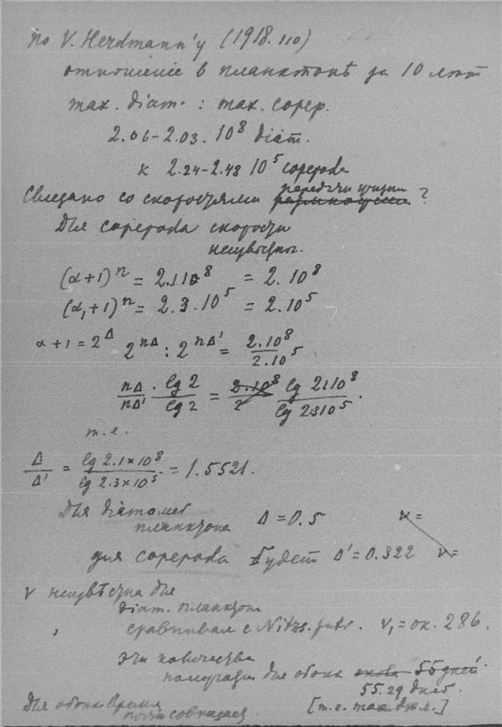 По V. Herdmann'у (1918. 110)
отношение в планктонѣ за 10 лѣт
max. diam. : max. copep.
2.06-2.03. 10⁸ diat.
к 2.24-2.43 10⁵ copepoda
передачи жизни
Связано со скоростями ?
Для copepoda скорости
неизвѣстны.
(α+1)ⁿ = 2.1 10⁸ = 2. 10⁸
(α₁+1)ⁿ = 2.3. 10⁵ = 2.10⁵
α+1 = 2^Δ 2^nΔ : 2^nΔ' = 2.10⁸ / 2.10⁵
nΔ/nΔ' . lg 2/lg 2 = lg 2.1 10⁸ / lg 2.3 10⁵.
т.е.
Δ/Δ' = lg 2.1×10⁸ / lg 2.3×10⁵ = 1.5521.
Для діатомей
планктона Δ = 0.5 α =
для copepoda будет Δ' = 0.322 v =
v неизвѣстна для
diat. планктона
сравнивал с Nitzs. putr. v₁ = ок. 286.
эти количества
для обоих 55 дней
55.29 дней
Для обоих время [т.е. max. для.]
почти совпадает